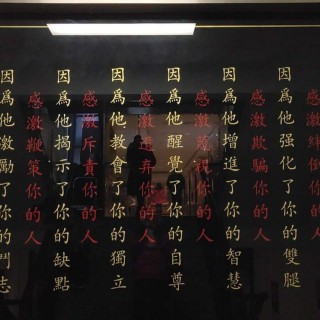 感激絆倒你的人
因爲他强化了你的雙腿
感激欺騙你的人
因爲他增進了你的智慧
感激視你的人
因爲他醒覺了你的自尊
感激遺棄你的人
因爲他教會了你的獨立
感激斥責你的人
因爲他揭示了你的缺點
感激鞭策你的人
因爲他激勵了你的鬥志